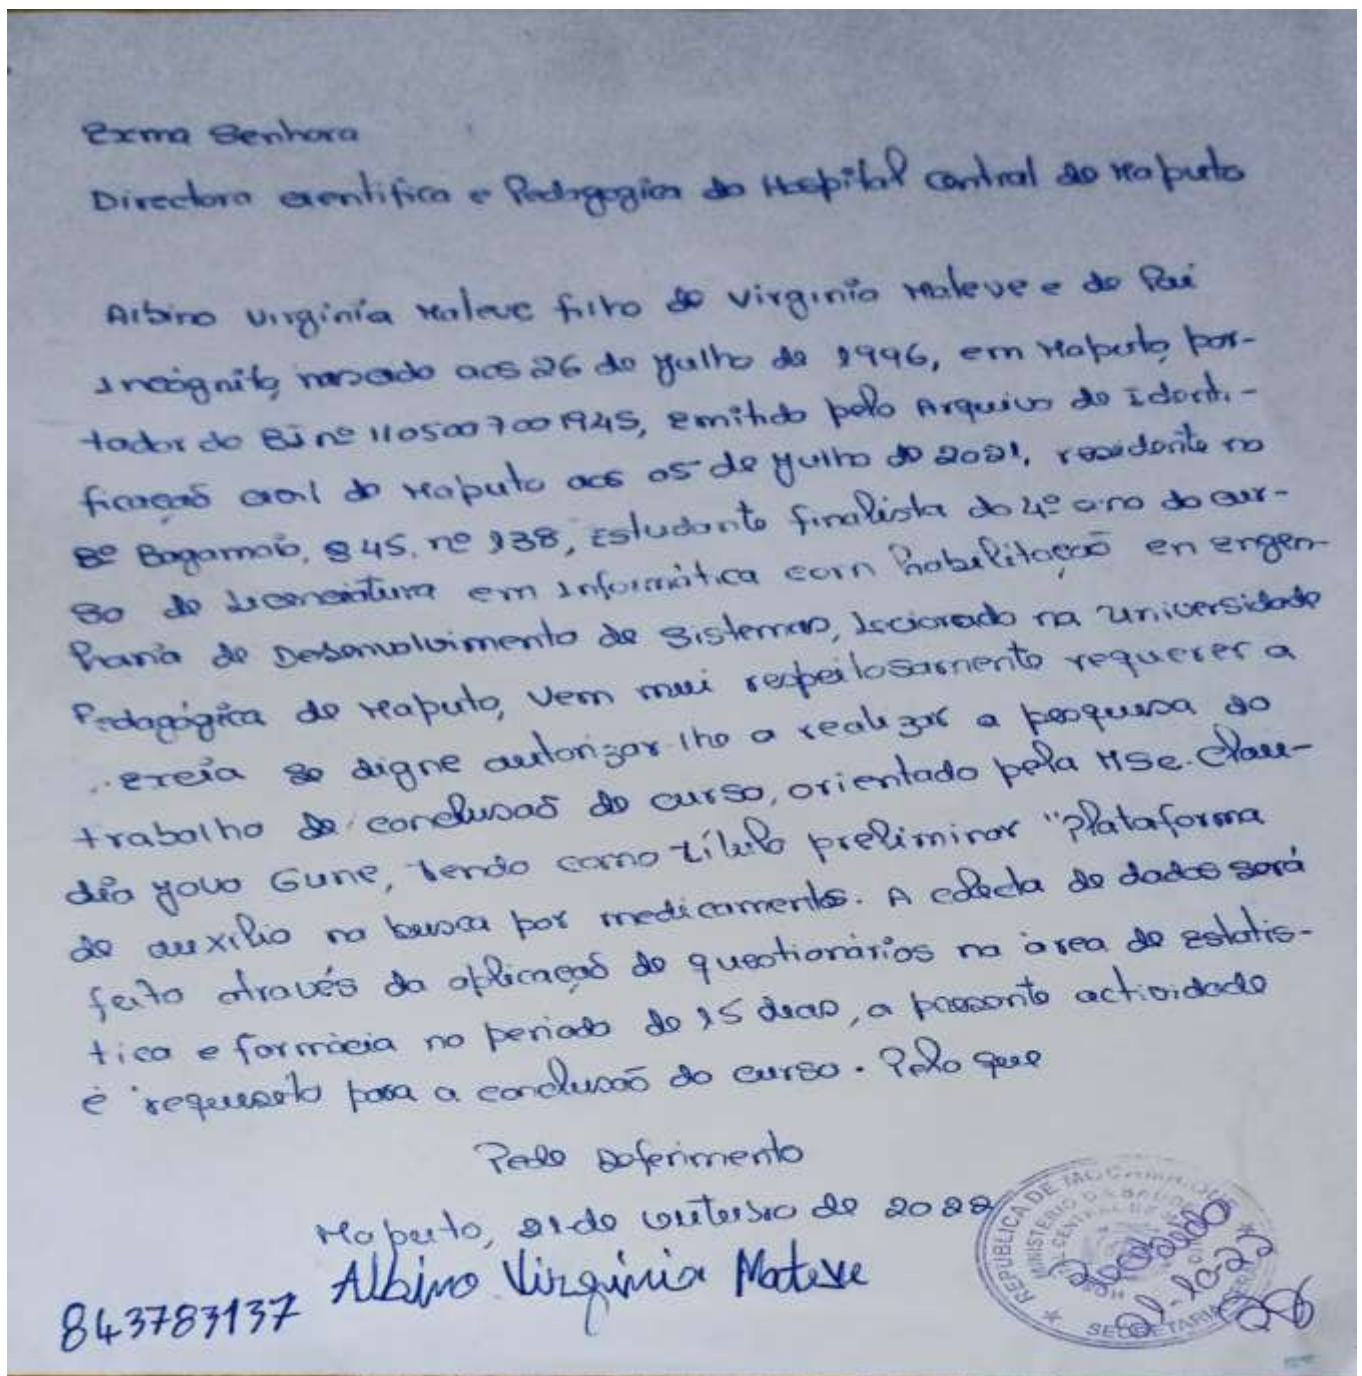 Exma Senhora
Directora cientifica e Pedagogica do Hospital Central de Maputo
Albino Virgínia Mateve filho de Virginia Mateve e de Pai
Incógnito, nascido aos 26 de Julho de 1996, em Maputo, por-
tador do Bi nº 110500700194S, emitido pelo Arquivo de Identi-
ficação civil de Maputo aos 05 de Julho de 2021, residente no
Bº Bagamoio, Q 45, nº 138, Estudante finalista do 4º ano do cur-
so de Licenciatura em Informática com habilitação en engen-
haria de Desenvolvimento de Sistemas, leccionado na Universidade
Pedagógica de Maputo, Vem mui respeitosamente requerer a
excia se digne autorizar-lhe a realizar a pesquisa do
trabalho de conclusão do curso, orientado pela MSc. Clau-
dia Jovo Gune, tendo como título preliminar "Plataforma
de auxílio na busca por medicamentos. A colecta de dados será
feita através da aplicação de questionários na área de Estatis-
tica e farmácia no periodo de 15 dias, a presente actividade
é requisito para a conclusão do curso. Pelo que
Pede Deferimento
Maputo, 21 de Outubro de 2022
Albino Virgínia Mateve
843783137
REPUBLICA DE MOÇAMBIQUE
MINISTERIO DA SAUDE
HOSPITAL CENTRAL DE
SECRETARIA GERAL
21-10-22